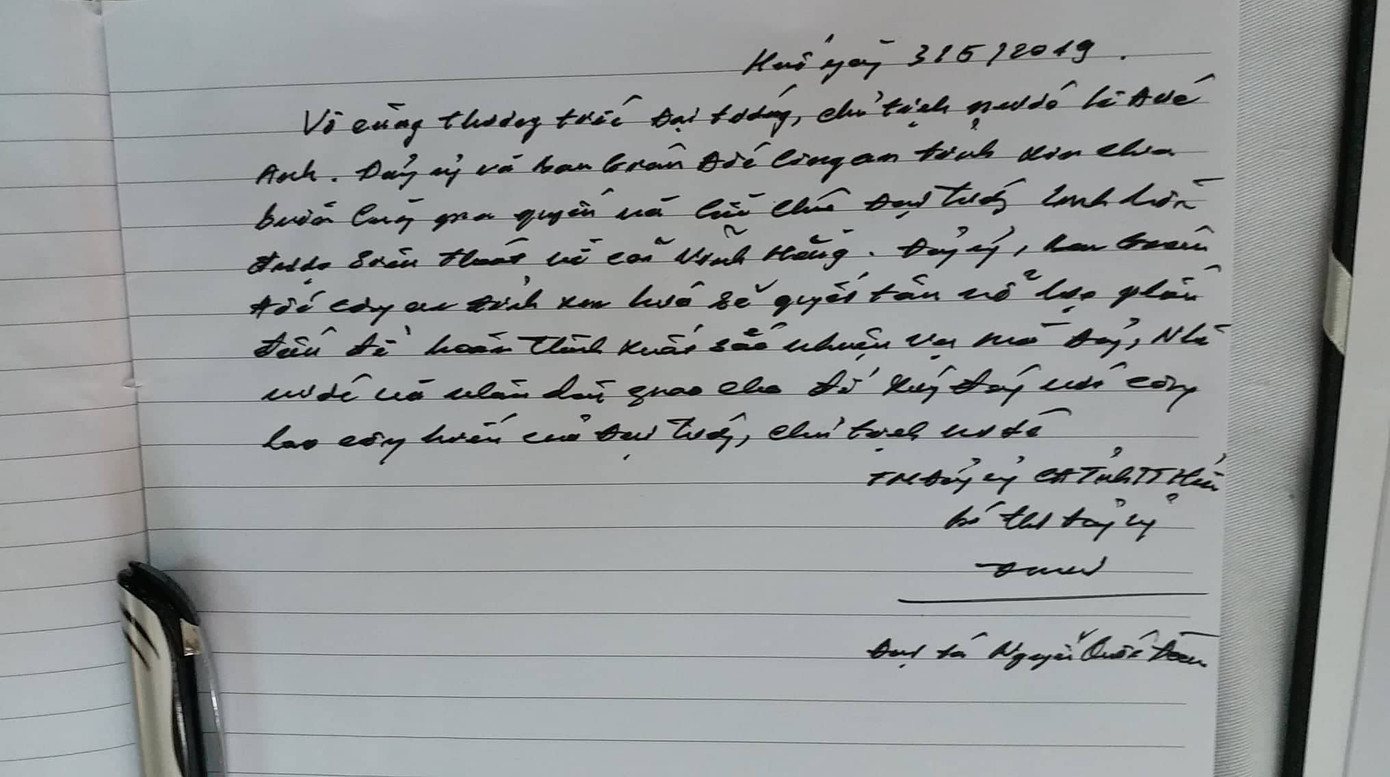 Huế ngày 3/5/2019.
Vô cùng thương tiếc Đại tướng, chủ tịch nước Lê Đức
Anh. Đảng ủy và ban Giám đốc Công an tỉnh xin chia
buồn cùng gia quyến và cầu chúc Đại tướng linh hồn
được siêu thoát về cõi Vĩnh Hằng. Đảng ủy, ban Giám
đốc công an tỉnh xin hứa sẽ quyết tâm nỗ lực phấn
đấu để hoàn thành xuất sắc nhiệm vụ mà Đảng, Nhà
nước và nhân dân giao cho để xứng đáng với công
lao cống hiến của Đại Tướng, chủ tịch nước
TM Đảng ủy CA Tỉnh TT Huế
bí thư Đảng ủy
Đại tá Nguyễn Quốc Đoàn